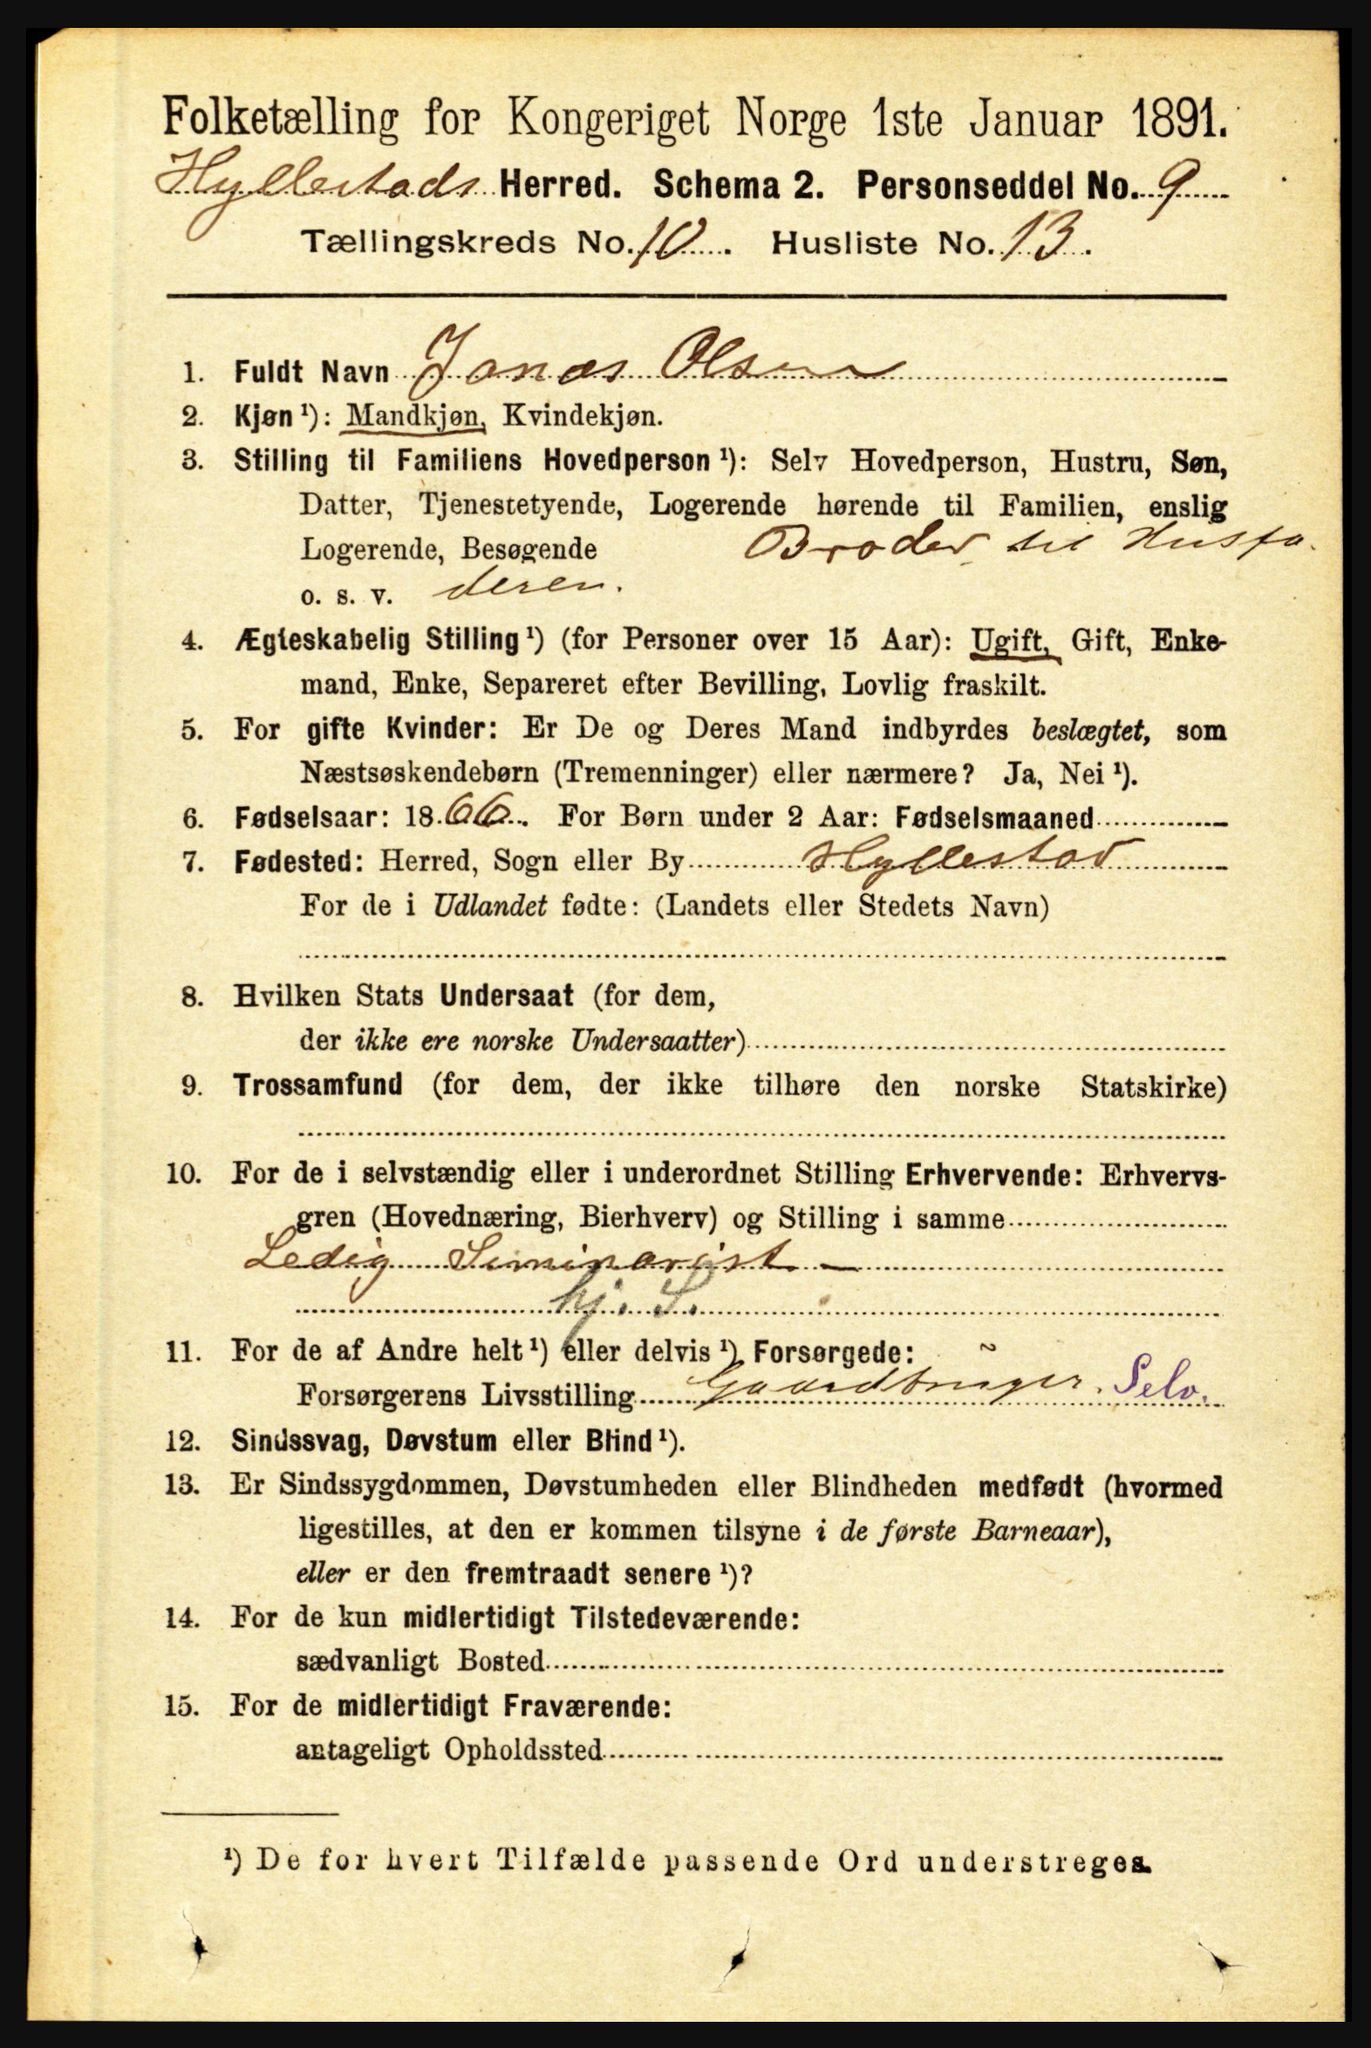 Folketælling for Kongeriget Norge 1ste Januar 1891.
Hyllestads Herred. Schema 2. Personseddel No. 9
Tællingskreds No. 10. Husliste No. 13.
1. Fuldt Navn Jonas Olsen
2. Kjøn ¹): Mandkjøn, Kvindekjøn.
3. Stilling til Familiens Hovedperson ¹): Selv Hovedperson, Hustru, Søn,
Datter, Tjenestetyende, Logerende hørende til Familien, enslig
Logerende, Besøgende Broder til Husfa-
o. s. v. deren.
4. Ægteskabelig Stilling ¹) (for Personer over 15 Aar): Ugift, Gift, Enke-
mand, Enke, Separeret efter Bevilling, Lovlig fraskilt.
5. For gifte Kvinder: Er De og Deres Mand indbyrdes beslægtet, som
Næstsøskendebørn (Tremenninger) eller nærmere? Ja, Nei ¹).
6. Fødselsaar: 1866. For Børn under 2 Aar: Fødselsmaaned
7. Fødested: Herred, Sogn eller By Hyllestad
For de i Udlandet fødte: (Landets eller Stedets Navn)
8. Hvilken Stats Undersaat (for dem,
der ikke ere norske Undersaatter)
9. Trossamfund (for dem, der ikke tilhøre den norske Statskirke)
10. For de i selvstændig eller i underordnet Stilling Erhvervende: Erhvervs-
gren (Hovednæring, Bierhverv) og Stilling i samme
Ledig Seminarist —
hj. S.
11. For de af Andre helt ¹) eller delvis ¹) Forsørgede:
Forsørgerens Livsstilling Gaardbruger. Selv.
12. Sindssvag, Døvstum eller Blind ¹).
13. Er Sindssygdommen, Døvstumheden eller Blindheden medfødt (hvormed
ligestilles, at den er kommen tilsyne i de første Barneaar),
eller er den fremtraadt senere ¹)?
14. For de kun midlertidigt Tilstedeværende:
sædvanligt Bosted
15. For de midlertidigt Fraværende:
antageligt Opholdssted
¹) De for hvert Tilfælde passende Ord understreges.